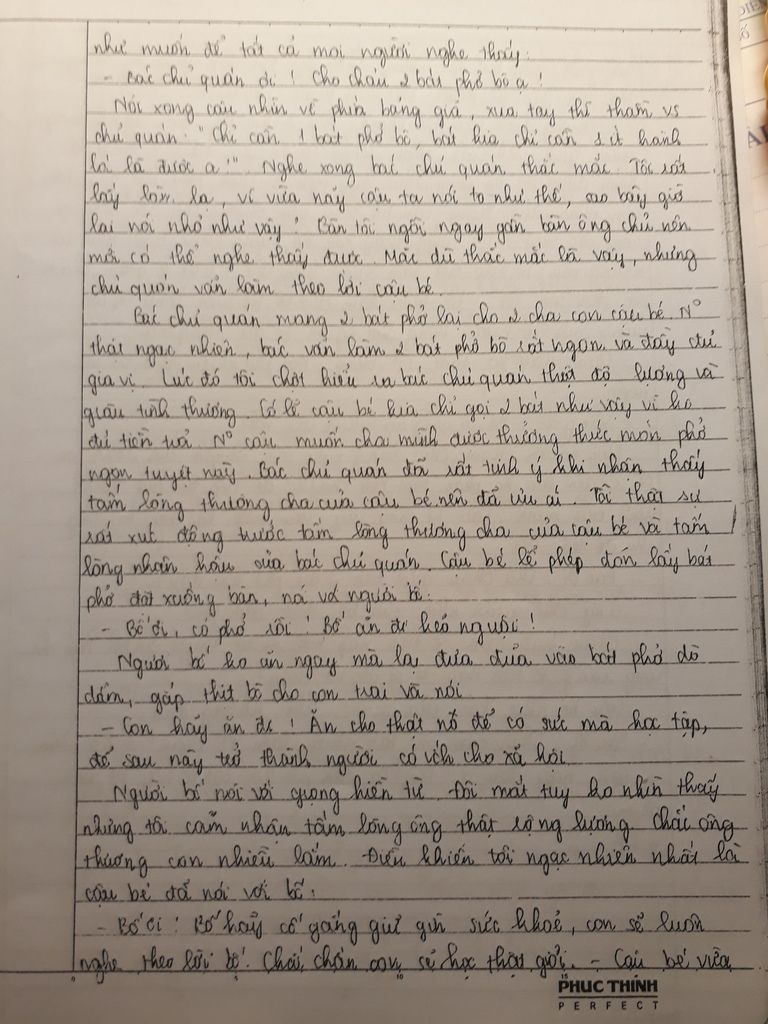 như muốn để tất cả mọi người nghe thấy:
- Bác chủ quán ơi ! Cho cháu 2 bát phở bò ạ !
Nói xong cậu nhìn về phía bảng giá, xua tay thì thầm vs
chủ quán: "Chỉ cần 1 bát phở bò, bát kia chỉ cần 1 ít hành
lá là được ạ!". Nghe xong bác chủ quán thắc mắc. Tôi rất
lấy làm lạ, vì vừa nãy cậu ta nói to như thế, sao bây giờ
lại nói nhỏ như vậy ! Bàn tôi ngồi ngay gần bàn ông chủ nên
mới có thể nghe thấy được. Mặc dù thắc mắc là vậy, nhưng
chủ quán vẫn làm theo lời cậu bé.
Bác chủ quán mang 2 bát phở lại cho 2 cha con cậu bé. N°
thật ngạc nhiên, bác vẫn làm 2 bát phở bò rất ngon và đầy đủ
gia vị. Lúc đó tôi chợt hiểu ra bác chủ quán thật độ lượng và
giàu tình thương. Có lẽ cậu bé kia chỉ gọi 2 bát như vậy vì ko
đủ tiền trả. N° cậu muốn cha mình được thưởng thức món phở
ngon tuyệt này. Bác chủ quán đã rất tinh ý khi nhận thấy
tấm lòng thương cha của cậu bé nên đã ưu ái. Tôi thật sự
rất xúc động trước tấm lòng thương cha của cậu bé và tấm
lòng nhân hậu của bác chủ quán. Cậu bé lễ phép đón lấy bát
phở đặt xuống bàn, nói với người bố:
- Bố ơi, có phở rồi ! Bố ăn đi kẻo nguội !
Người bố ko ăn ngay mà lại đưa đũa vào bát phở dò
dẫm, gắp thịt bò cho con trai và nói
- Con hãy ăn đi ! Ăn cho thật nô để có sức mà học tập,
để sau này trở thành người có ích cho xã hội.
Người bố nói với giọng hiền từ. Đôi mắt tuy ko nhìn thấy
nhưng tôi cảm nhận tấm lòng ông thật rộng lượng. Chắc ông
thương con nhiều lắm. Điều khiến tôi ngạc nhiên nhất là
cậu bé đã nói với bố:
- Bố ơi ! Bố hãy cố gắng giữ gìn sức khoẻ, con sẽ luôn
nghe theo lời bố. Chắc chắn con sẽ học thật giỏi. - Cậu bé vừa
PHUC THINH
PERFECT